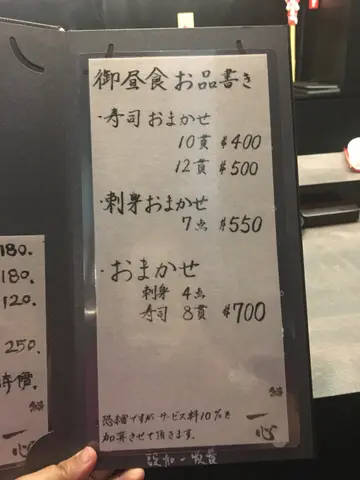 御昼食お品書き
・寿司おまかせ
10貫 $400
12貫 $500
・刺身おまかせ
7点 $550
・おまかせ
刺身 4点
寿司 8貫 $700
恐縮ですがサービス料10%を
加算させて頂きます。
一心
設加一收費
180.
180.
120.
250.
時價.
一心